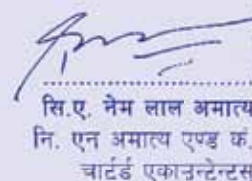 सि.ए. नेम लाल अमात्य
नि. एन अमात्य एण्ड क.
चार्टर्ड एकाउन्टेन्टस